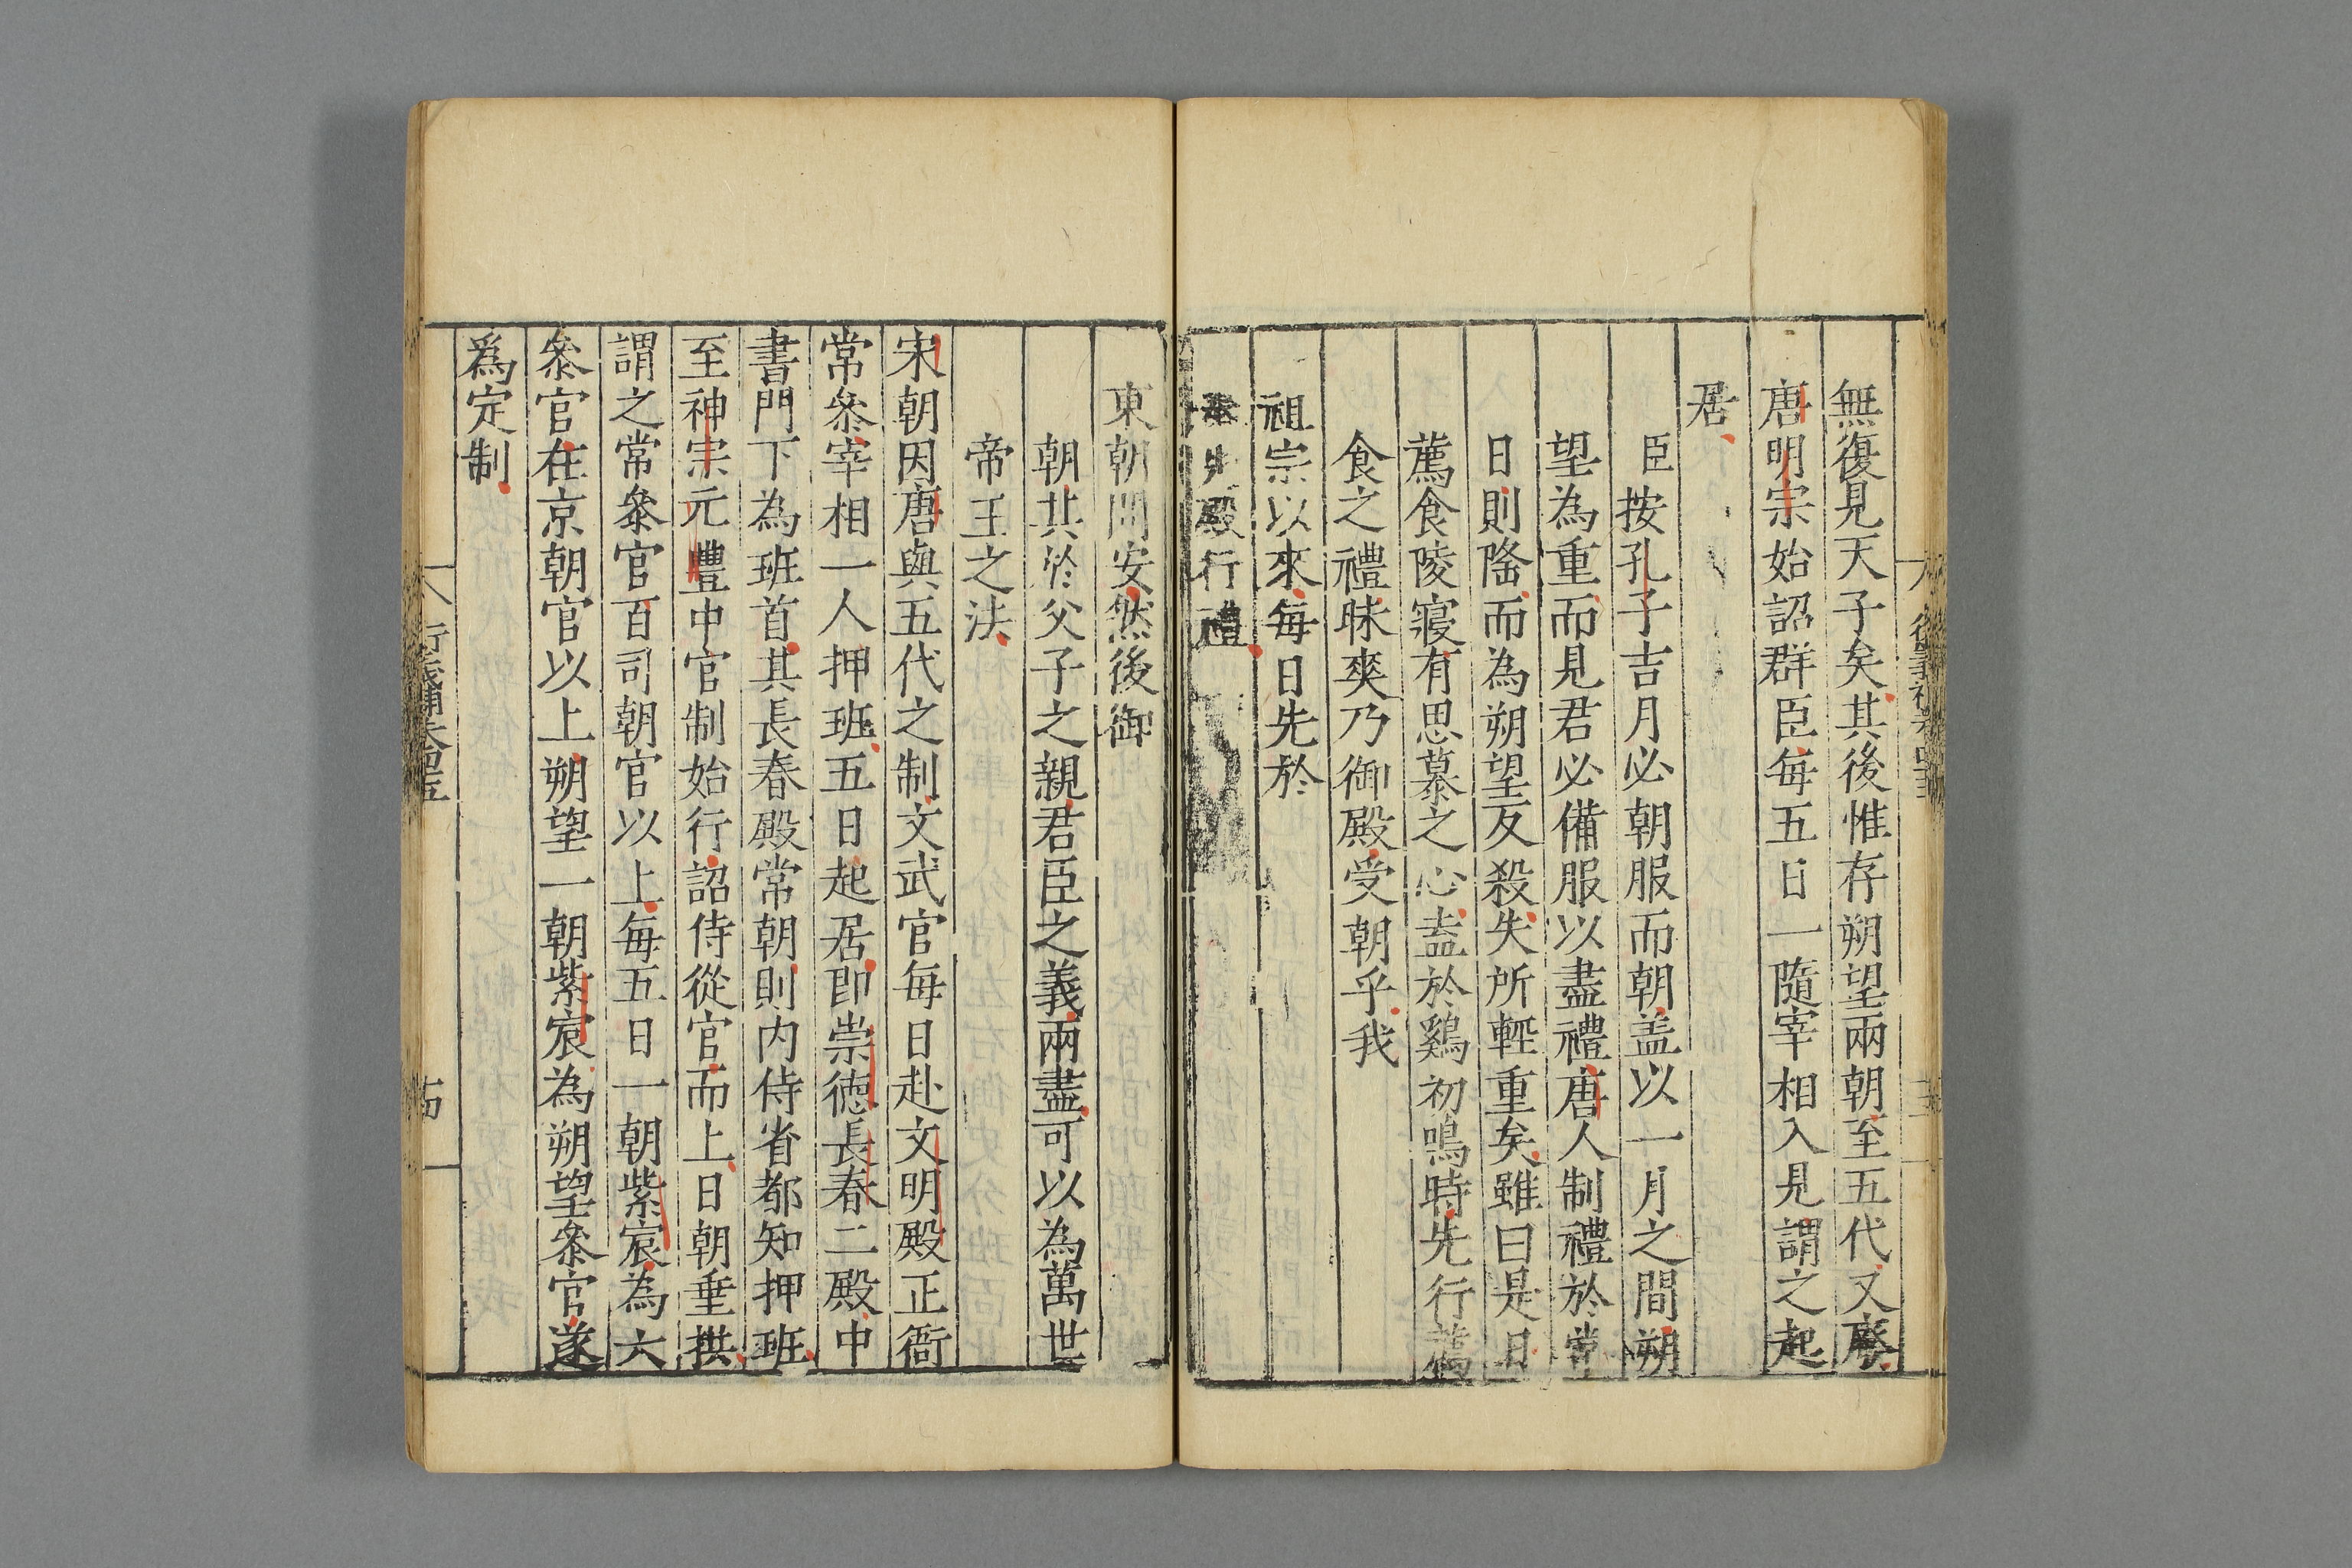 無復見天子矣其後惟存朔望兩朝至五代又廢
唐明宗始詔群臣每五日一隨宰相入見謂之起
居
臣按孔子吉月必朝服而朝盖以一月之間朔
望為重而見君必備服以盡禮唐人制禮於常
日則隆而為朔望反殺失所輕重矣雖曰是日
薦食陵寢有思慕之心盍於鷄初鳴時先行薦
食之禮昧爽乃御殿受朝乎我
祖宗以來每日先於
奉先殿行禮
東朝問安然後御
朝其於父子之親君臣之義兩盡可以為萬世
帝王之法
宋朝因唐與五代之制文武官每日赴文明殿正衙
常叅宰相一人押班五日起居即崇德長春二殿中
書門下為班首其長春殿常朝則内侍省都知押班
至神宗元豐中官制始行詔侍從官而上日朝垂拱
謂之常叅官百司朝官以上每五日一朝紫宸為六
叅官在京朝官以上朔望一朝紫宸為朔望叅官遂
爲定制